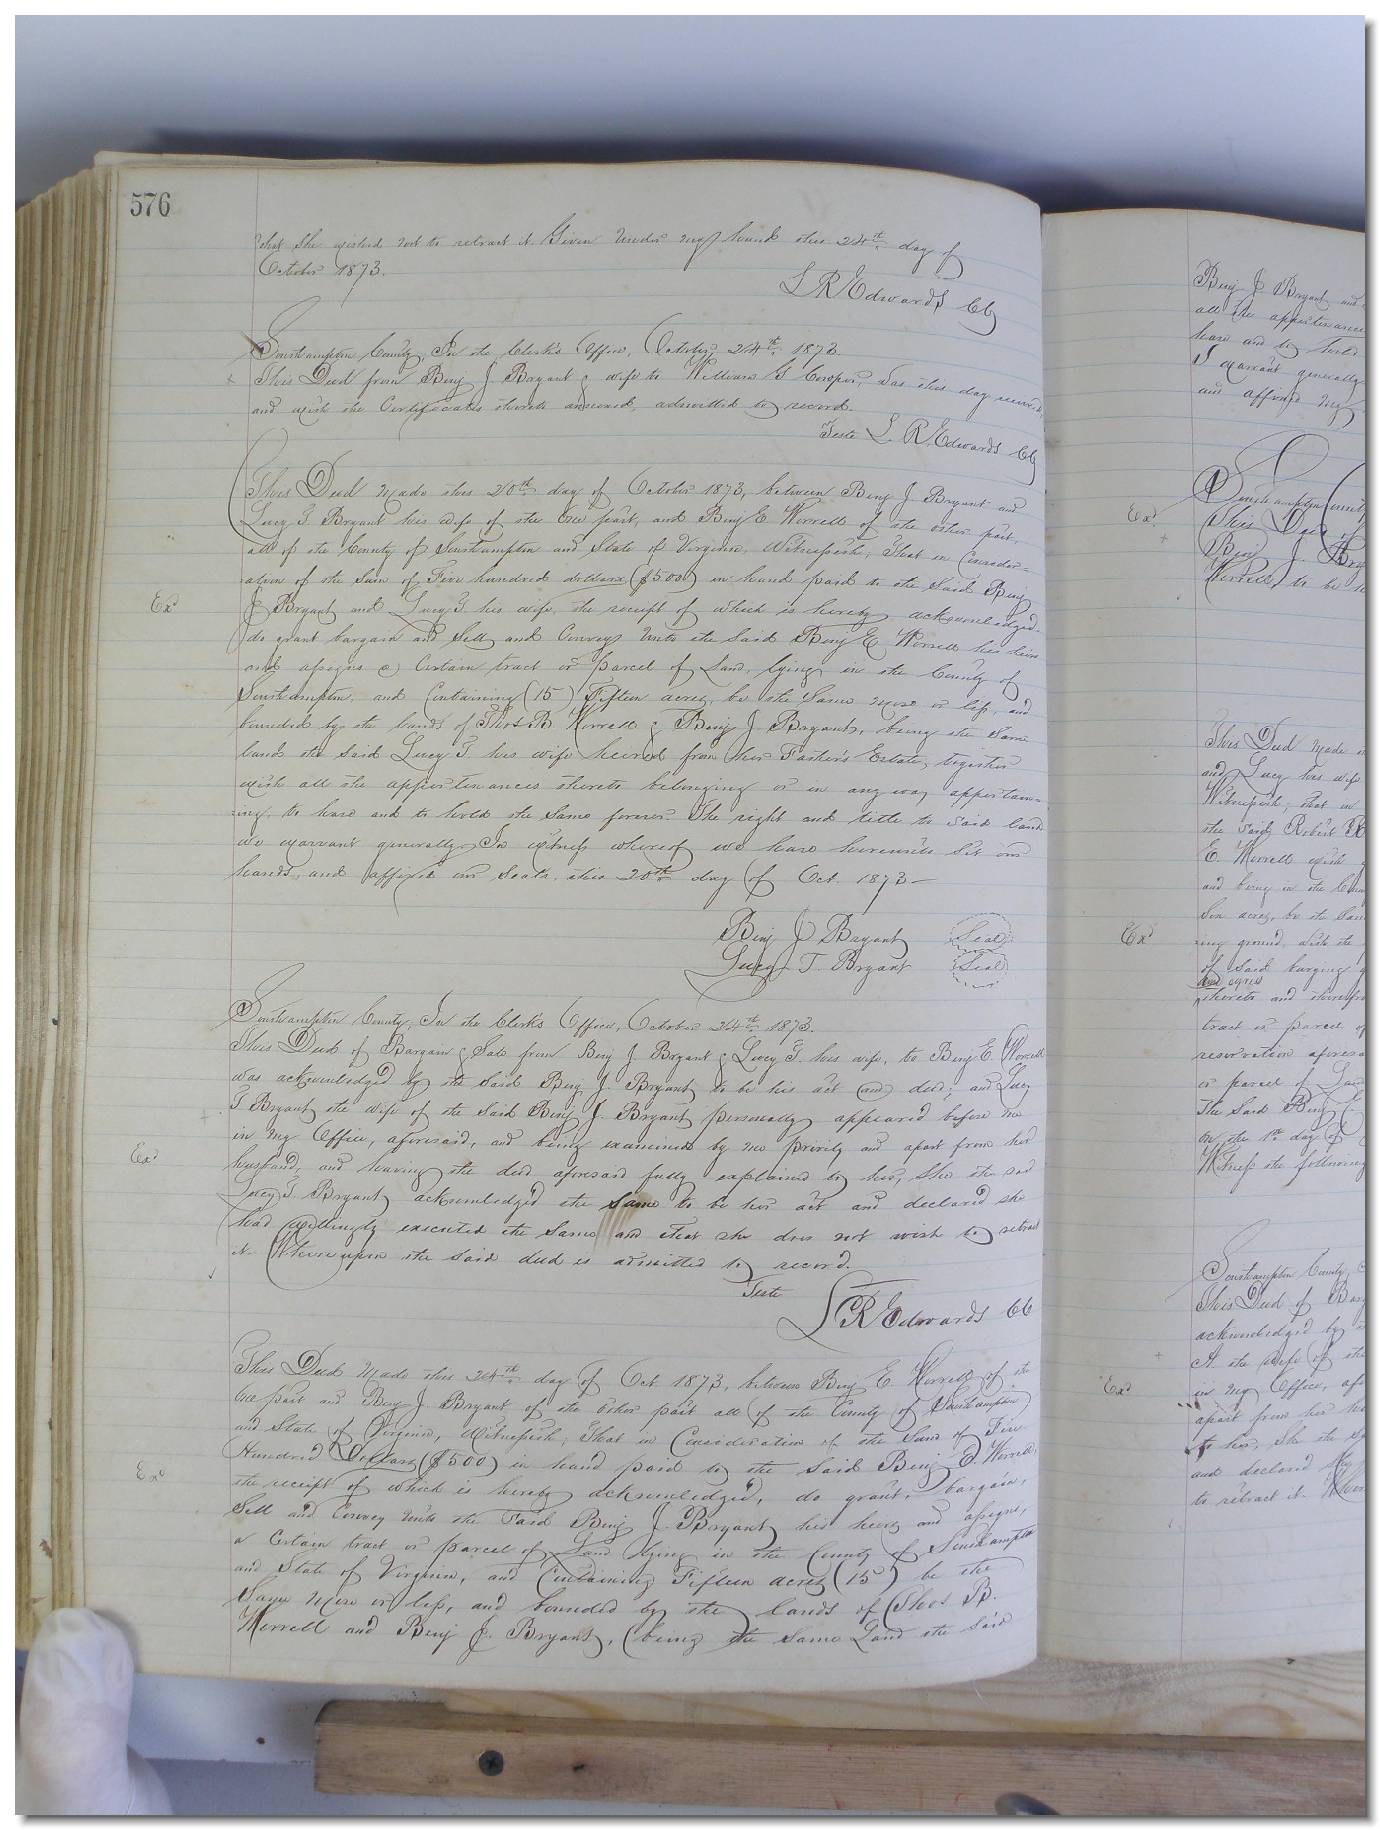 576
that she wished not to retract it. Given under my hand this 24th day of
October 1873.
L R Edwards CC
Southampton County, In the Clerk's Office, October 24th 1873.
This Deed from Benj J. Bryant & wife to William G Cowper, was this day received,
and with the Certificates thereto annexed, admitted to record.
Teste L R Edwards CC
This Deed made this 20th day of October 1873, between Benj J. Bryant and
Lucy T. Bryant his wife of the one part, and Benj E. Worrell of the other part,
all of the County of Southampton and State of Virginia, Witnesseth, That in Consider-
ation of the Sum of Five hundred dollars ($500) in hand paid to the said Benj
J Bryant and Lucy T. his wife, the receipt of which is hereby acknowledged,
do grant bargain and Sell and Convey unto the said Benj E Worrell his heirs
and assigns a Certain tract or parcel of Land, lying in the County of
Southampton, and Containing (15) Fifteen acres, be the Same more or less, and
bounded by the lands of Thos B Worrell & Benj J. Bryant, being the Same
lands the said Lucy T. his wife heired from her Father's Estate, together
with all the appurtenances thereto belonging or in any way appertain-
ing, to have and to hold the Same forever. The right and title to said land
we warrant generally. In witness whereof we have hereunto Set our
hands, and affixed our Seals this 20th day of Oct. 1873 —
Ex'd
Benj J Bryant Seal
Lucy T. Bryant Seal
Southampton County, In the Clerk's Office, October 24th 1873.
This Deed of Bargain & Sale from Benj J. Bryant & Lucy T. his wife, to Benj E. Worrell
was acknowledged by the said Benj J. Bryant to be his act and deed; and Lucy
T. Bryant the wife of the said Benj J. Bryant personally appeared before me
in my Office, aforesaid, and being examined by me privily and apart from her
husband, and having the deed aforesaid fully explained to her, She the said
Lucy T. Bryant acknowledged the same to be her act and declared she
had willingly executed the Same and that she does not wish to retract
it. Whereupon the said deed is admitted to record.
Ex'd
Teste
L R Edwards CC
This Deed made this 24th day of Oct 1873, between Benj E. Worrell of the
one part and Benj J. Bryant of the other part all of the County of Southampton
and State of Virginia, Witnesseth, That in Consideration of the Sum of Five
Hundred Dollars ($500) in hand paid to the said Benj E. Worrell,
the receipt of which is hereby acknowledged, do grant, bargain,
Sell and Convey unto the Said Benj J. Bryant his heirs and assigns,
a Certain tract or parcel of Land lying in the County of Southampton
and State of Virginia, and Containing Fifteen acres (15) be the
Same more or less, and bounded by the lands of Thos B.
Worrell and Benj J. Bryant, (being the Same Land the said
Ex'd
Benj J Bryant and
all the appurtenances
have and to hold
I warrant generally
and affixed my
Southampton County
This Deed
Benj J. Bry
Worrell to be h
Ex'd
This Deed made
and Lucy his wife
Witnesseth, that in
the said Robert
E. Worrell with
and being in the Coun
ten acres, be the Sam
ing ground, with the
of said burying g
and egress
thereto and therefro
tract or parcel of
reservation aforesa
or parcel of Lan
The Said Benj
on the 1st day of
Witness the following
Ex'd
Southampton County,
This Deed of Bar
acknowledged by
A. the wife of the
in my Office, afo
apart from her hu
to her, She the s
and declared
to retract it. Wher
Ex'd